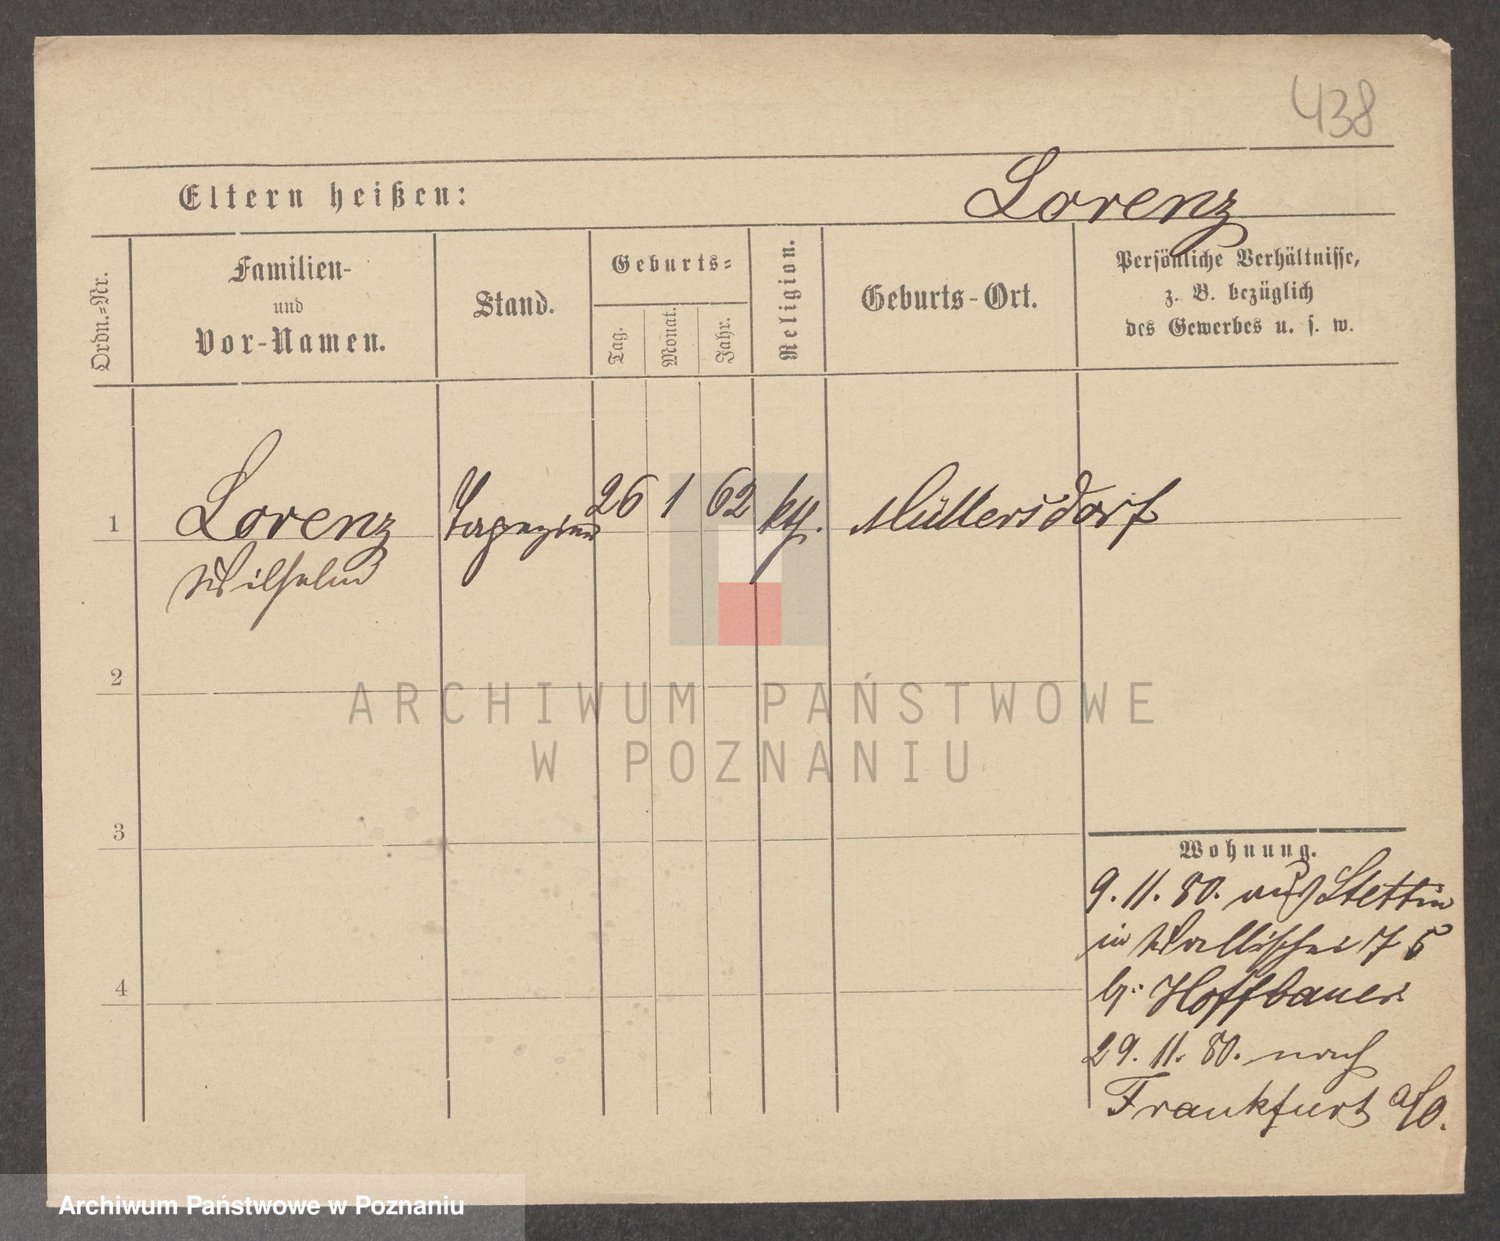 438
Lorenz
Eltern heißen:
Ordn.-Nr.
Familien-
und
Vor-Namen.
Stand.
Geburts-
Tag.
Monat.
Jahr.
Religion.
Geburts-Ort.
Persönliche Verhältnisse,
z. B. bezüglich
des Gewerbes u. s. w.
1
Lorenz
Wilhelm
Tapezierer
26
1
62
kth.
Müttersdorf
2
3
4
Wohnung.
9. 11. 80. aus Stettin
in Wallischei 75
bei Hoffbauer
29. 11. 80. nach
Frankfurt a/O.
ARCHIWUM PAŃSTWOWE
W POZNANIU
Archiwum Państwowe w Poznaniu